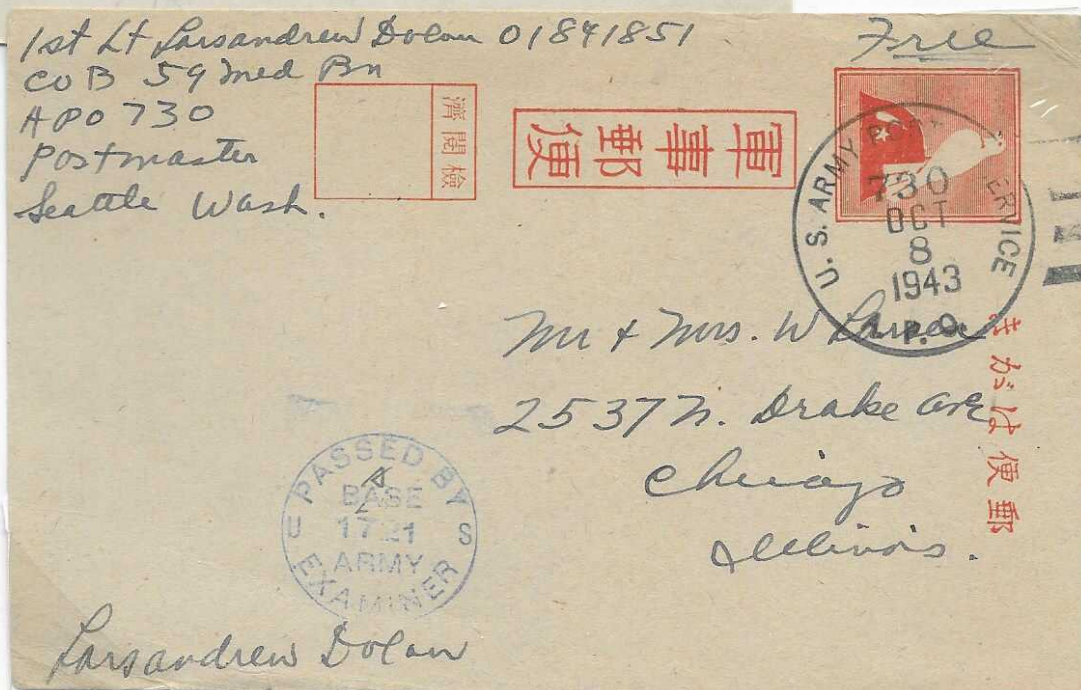 1st Lt Larsandrew Dolan 01841851
Co B 59 Med Bn
APO 730
Postmaster
Seattle Wash.
Free
檢閲濟
軍事郵便
U. S. ARMY POSTAL SERVICE
730
OCT
8
1943
A.P.O.
郵便はがき
Mr & Mrs. W Larsen
2537 N. Drake Ave
Chicago
Illinois.
PASSED BY
BASE
1721
ARMY
EXAMINER
U S
Larsandrew Dolan